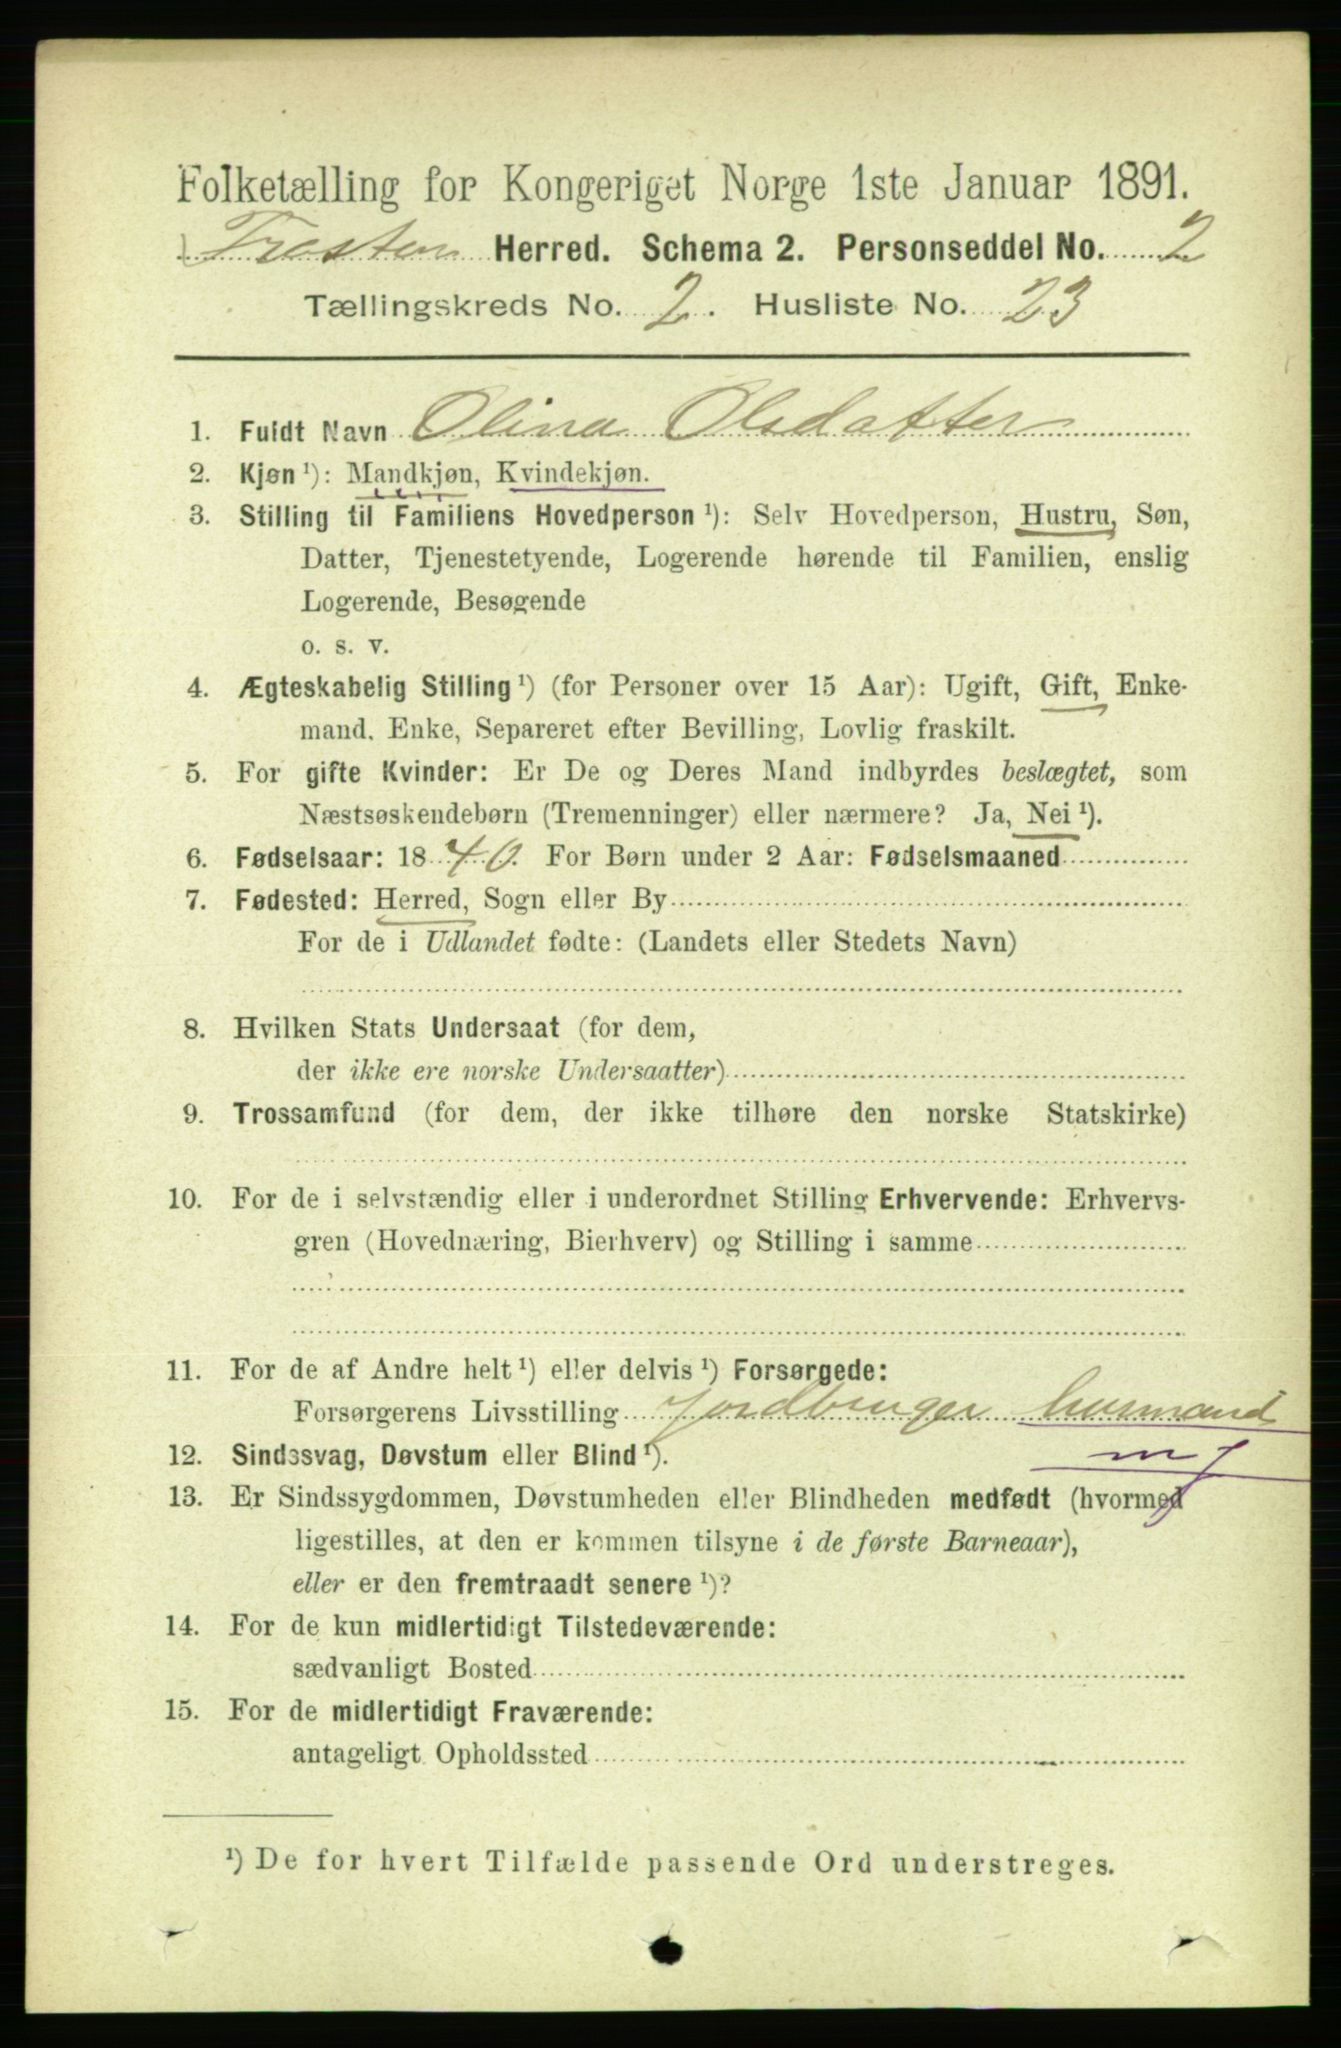 Folketælling for Kongeriget Norge 1ste Januar 1891.
Tresten Herred. Schema 2. Personseddel No. 2
Tællingskreds No. 2. Husliste No. 23
1. Fuldt Navn Olina Olsdatter
2. Kjøn ¹): Mandkjøn, Kvindekjøn.
3. Stilling til Familiens Hovedperson ¹): Selv Hovedperson, Hustru, Søn,
Datter, Tjenestetyende, Logerende hørende til Familien, enslig
Logerende, Besøgende
o. s. v.
4. Ægteskabelig Stilling ¹) (for Personer over 15 Aar): Ugift, Gift, Enke-
mand, Enke, Separeret efter Bevilling, Lovlig fraskilt.
5. For gifte Kvinder: Er De og Deres Mand indbyrdes beslægtet, som
Næstsøskendebørn (Tremenninger) eller nærmere? Ja, Nei ¹).
6. Fødselsaar: 1840. For Børn under 2 Aar: Fødselsmaaned
7. Fødested: Herred, Sogn eller By
For de i Udlandet fødte: (Landets eller Stedets Navn)
8. Hvilken Stats Undersaat (for dem,
der ikke ere norske Undersaatter)
9. Trossamfund (for dem, der ikke tilhøre den norske Statskirke)
10. For de i selvstændig eller i underordnet Stilling Erhvervende: Erhvervs-
gren (Hovednæring, Bierhverv) og Stilling i samme
11. For de af Andre helt ¹) eller delvis ¹) Forsørgede:
Forsørgerens Livsstilling Jordbruger husmand
12. Sindssvag, Døvstum eller Blind ¹). m J
13. Er Sindssygdommen, Døvstumheden eller Blindheden medfødt (hvormed
ligestilles, at den er kommen tilsyne i de første Barneaar),
eller er den fremtraadt senere ¹)?
14. For de kun midlertidigt Tilstedeværende:
sædvanligt Bosted
15. For de midlertidigt Fraværende:
antageligt Opholdssted
¹) De for hvert Tilfælde passende Ord understreges.